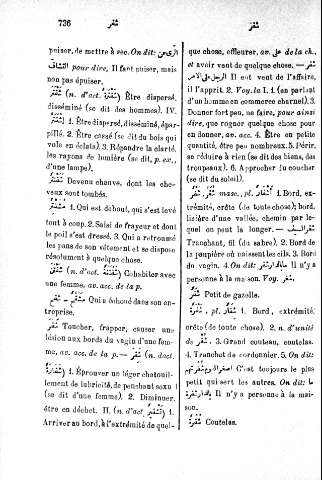 736
شفر
شفر
puiser, de mettre à sec. On dit:
pour dire, Il faut puiser, mais
non pas épuiser.
(n. d'act. ) Être dispersé,
disséminé (se dit des hommes). IV.
1. Être dispersé, disséminé, épar-
pillé. 2. Être cassé (se dit du bois qui
vole en éclats). 3. Répandre la clarté,
les rayons de lumière (se dit, p. ex.,
d'une lampe).
Devenu chauve, dont les che-
veux sont tombés.
1. Qui est debout, qui s'est levé
tout à coup. 2. Saisi de frayeur et dont
le poil s'est dressé. 3. Qui a retroussé
les pans de son vêtement et se dispose
résolument à quelque chose.
(n. d'act. ) Cohabiter avec
une femme, av. acc. de la p.
Qui a échoué dans son en-
treprise.
شفر Toucher, frapper, causer une
lésion aux bords du vagin d'une fem-
me, av. acc. de la p. — (n. d'act.
) 1. Éprouver un léger chatouil-
lement de lubricité, de penchant sexuel
(se dit d'une femme). 2. Diminuer,
être en déchet. II. (n. d'act. ) 1.
Arriver au bord, à l'extrémité de quel-
que chose, effleurer, av. على de la ch.,
et avoir vent de quelque chose. —
Il eut vent de l'affaire,
il l'apprit. 2. Voy. la I. 1. (en parlant
d'un homme en commerce charnel). 3.
Donner fort peu, se faire, pour ainsi
dire, que rogner quelque chose pour
en donner, av. acc. 4. Être en petite
quantité, être peu nombreux. 5. Périr,
se réduire à rien (se dit des biens, des
troupeaux). 6. Approcher du coucher
(se dit du soleil).
شفر, شفر masc., pl. أشفار 1. Bord, ex-
trémité, crête (de toute chose); bord,
lisière d'une vallée, chemin par le-
quel on peut la longer. —
Tranchant, fil (du sabre). 2. Bord de
la paupière où naissent les cils. 3. Bord
du vagin. 4. On dit: Il n'y a
personne à la maison. Voy. شفرة.
شفر Petit de gazelle.
شفرة, pl. 1. Bord, extrémité,
crête (de toute chose). 2. n. d'unité
de شفر. 3. Grand couteau, coutelas.
4. Tranchet de cordonnier. 5. On dit:
C'est toujours le plus
petit qui sert les autres. On dit: ما
Il n'y a personne à la mai-
son.
Coutelas.